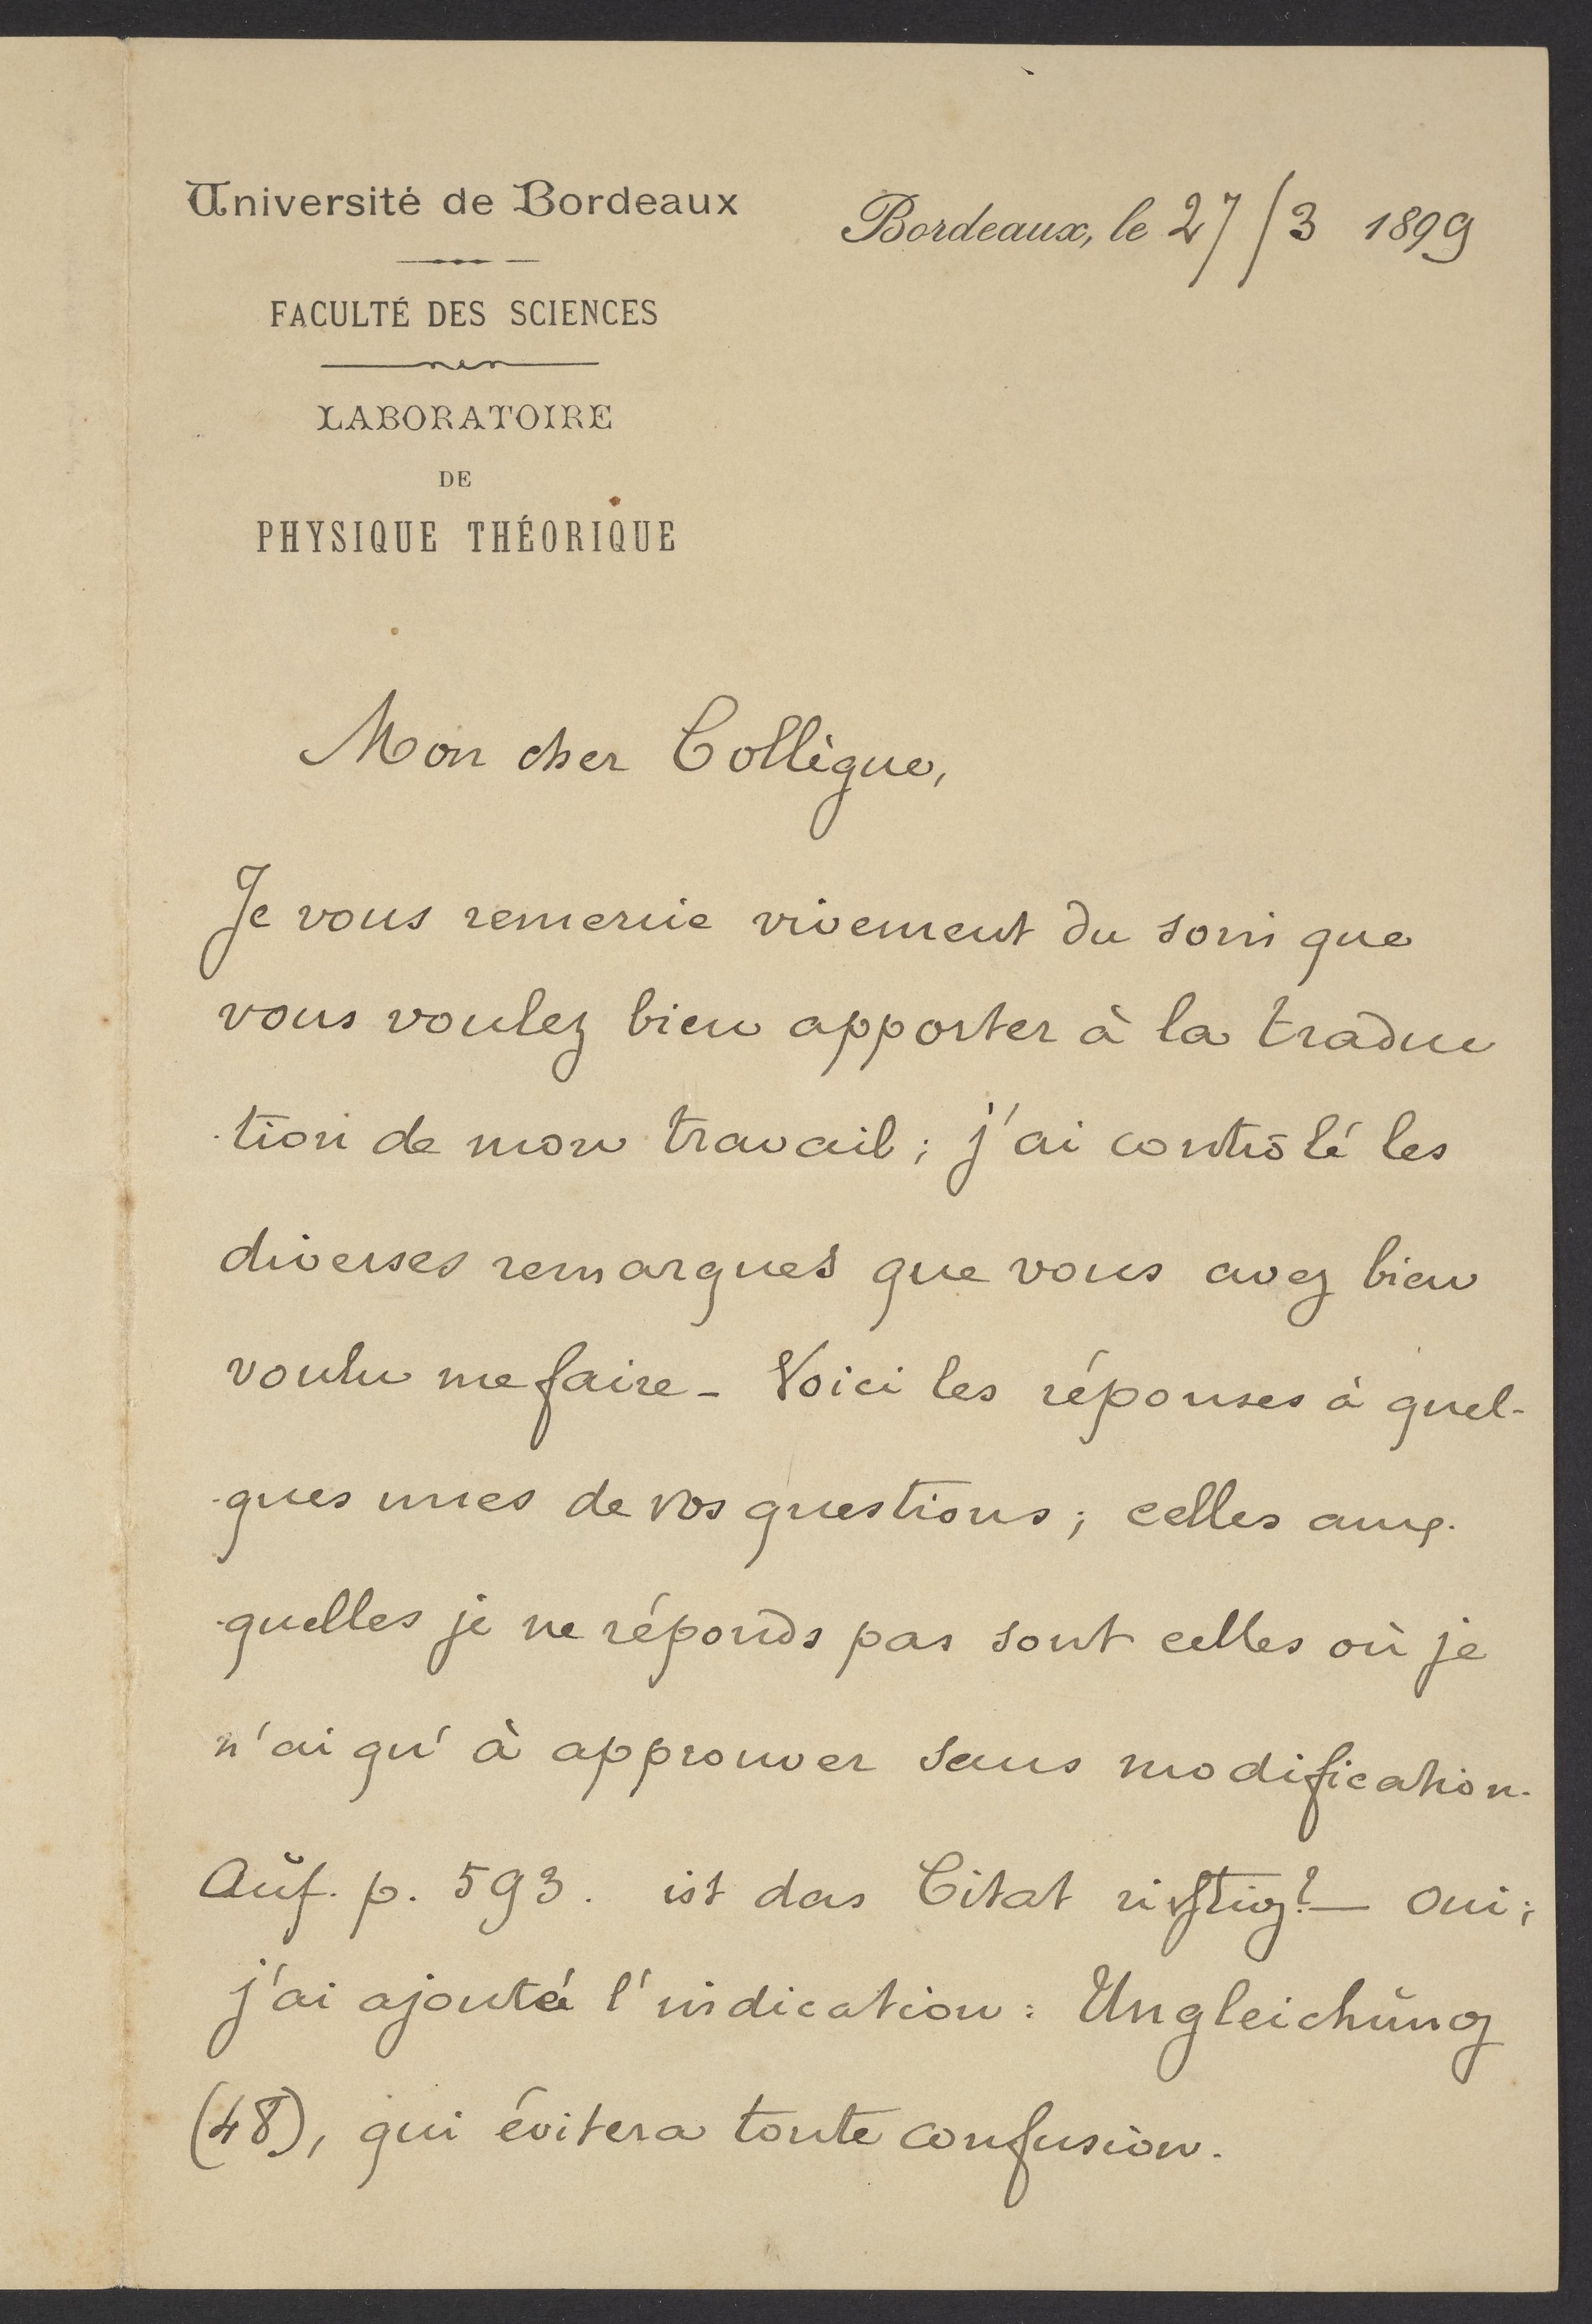 Université de Bordeaux
Bordeaux, le 27/3 1899
FACULTÉ DES SCIENCES
LABORATOIRE
DE
PHYSIQUE THÉORIQUE
Mon cher Collègue,
Je vous remercie vivement du soin que
vous voulez bien apporter à la traduc
-tion de mon travail ; j'ai contrôlé les
diverses remarques que vous avez bien
voulu me faire - Voici les réponses à quel-
-ques unes de vos questions ; celles aux-
-quelles je ne réponds pas sont celles où je
n'ai qu'à approuver sans modification.
Auf. p. 593. ist das Citat richtig? — oui ;
j'ai ajouté l'indication : Ungleichung
(48), qui évitera toute confusion.